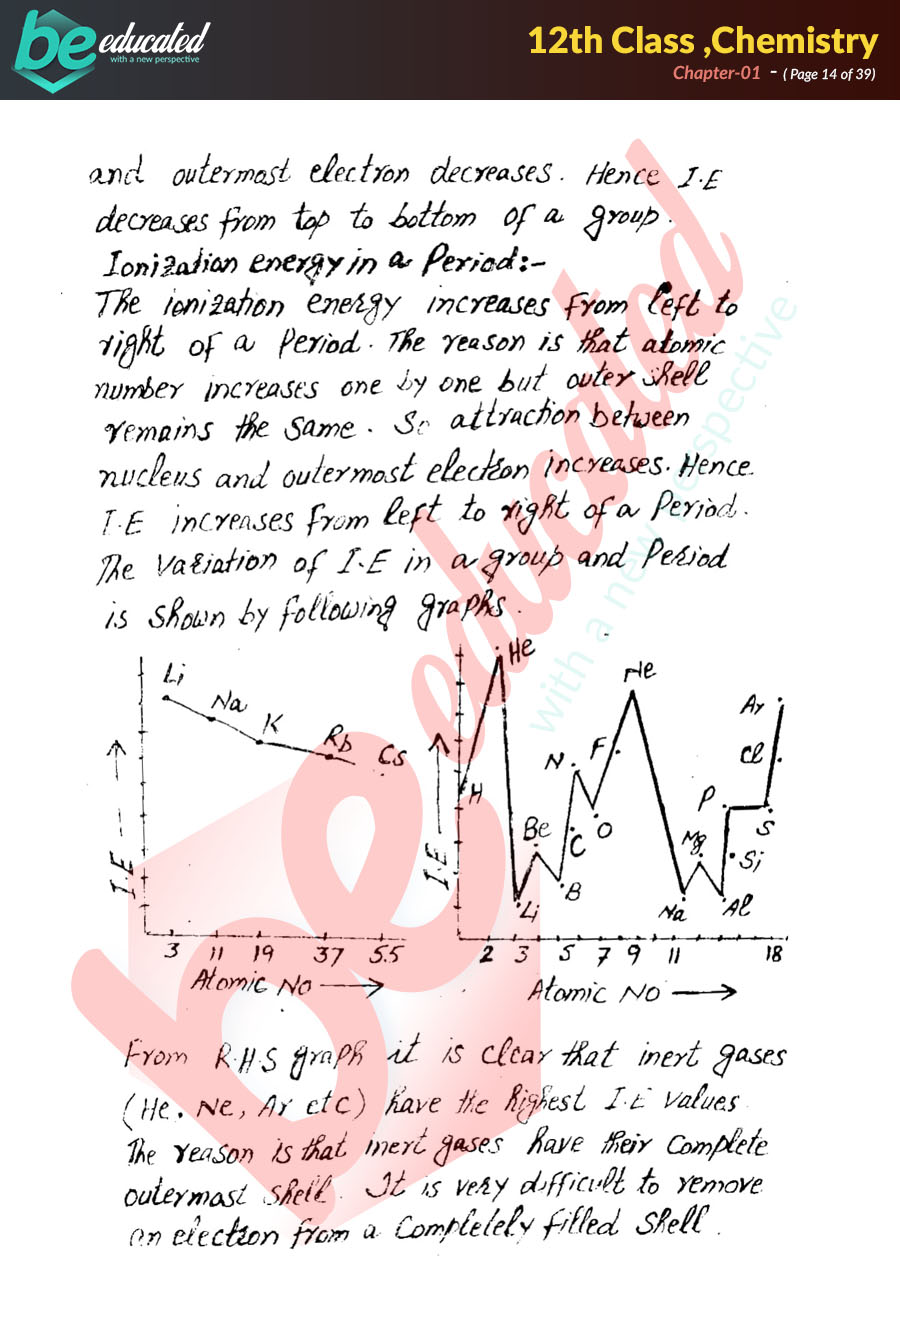 be educated
with a new perspective
12th Class ,Chemistry
Chapter-01 - ( Page 14 of 39)
and outermost electron decreases. Hence I.E
decreases from top to bottom of a group.
Ionization energy in a Period:-
The ionization energy increases from left to
right of a Period. The reason is that atomic
number increases one by one but outer shell
remains the same. So attraction between
nucleus and outermost electron increases. Hence
I.E increases from left to right of a Period.
The variation of I.E in a group and Period
is shown by following graphs.
Li
Na
K
Rb
Cs
I.E
3 11 19 37 55
Atomic No
He
H
Li
Be
B
C
N
O
F
Ne
Na
Mg
Al
Si
P
S
Cl
Ar
I.E
2 3 5 7 9 11 18
Atomic NO
From R.H.S graph it is clear that inert gases
(He, Ne, Ar etc) have the highest I.E values
The reason is that inert gases have their complete
outermost shell. It is very difficult to remove
an electron from a completely filled shell.
be educated
with a new perspective